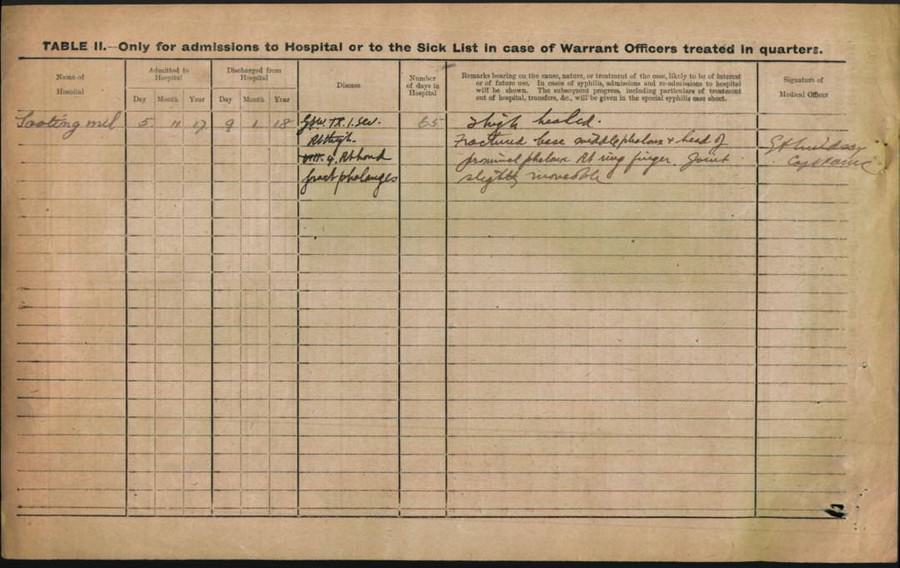 TABLE II.—Only for admissions to Hospital or to the Sick List in case of Warrant Officers treated in quarters.
Name of
Hospital
Admitted to
Hospital
Day Month Year
Discharged from
Hospital
Day Month Year
Disease
Number
of days in
Hospital
Remarks bearing on the cause, nature, or treatment of the case, likely to be of interest
or of future use. In cases of syphilis, admissions and re-admissions to hospital
will be shown. The subsequent progress, including particulars of treatment
out of hospital, transfers, &c., will be given in the special syphilis case sheet.
Signature of
Medical Officer
Tooting mil 5 11 17 9 1 18 GSW 1. Sev. 65 Thigh healed.
Rt thigh. Fractured base middle phalanx & head of
4. Rt hand proximal phalanx Rt ring finger. Joint
fract phalanges slightly moveable
Capt RAMC